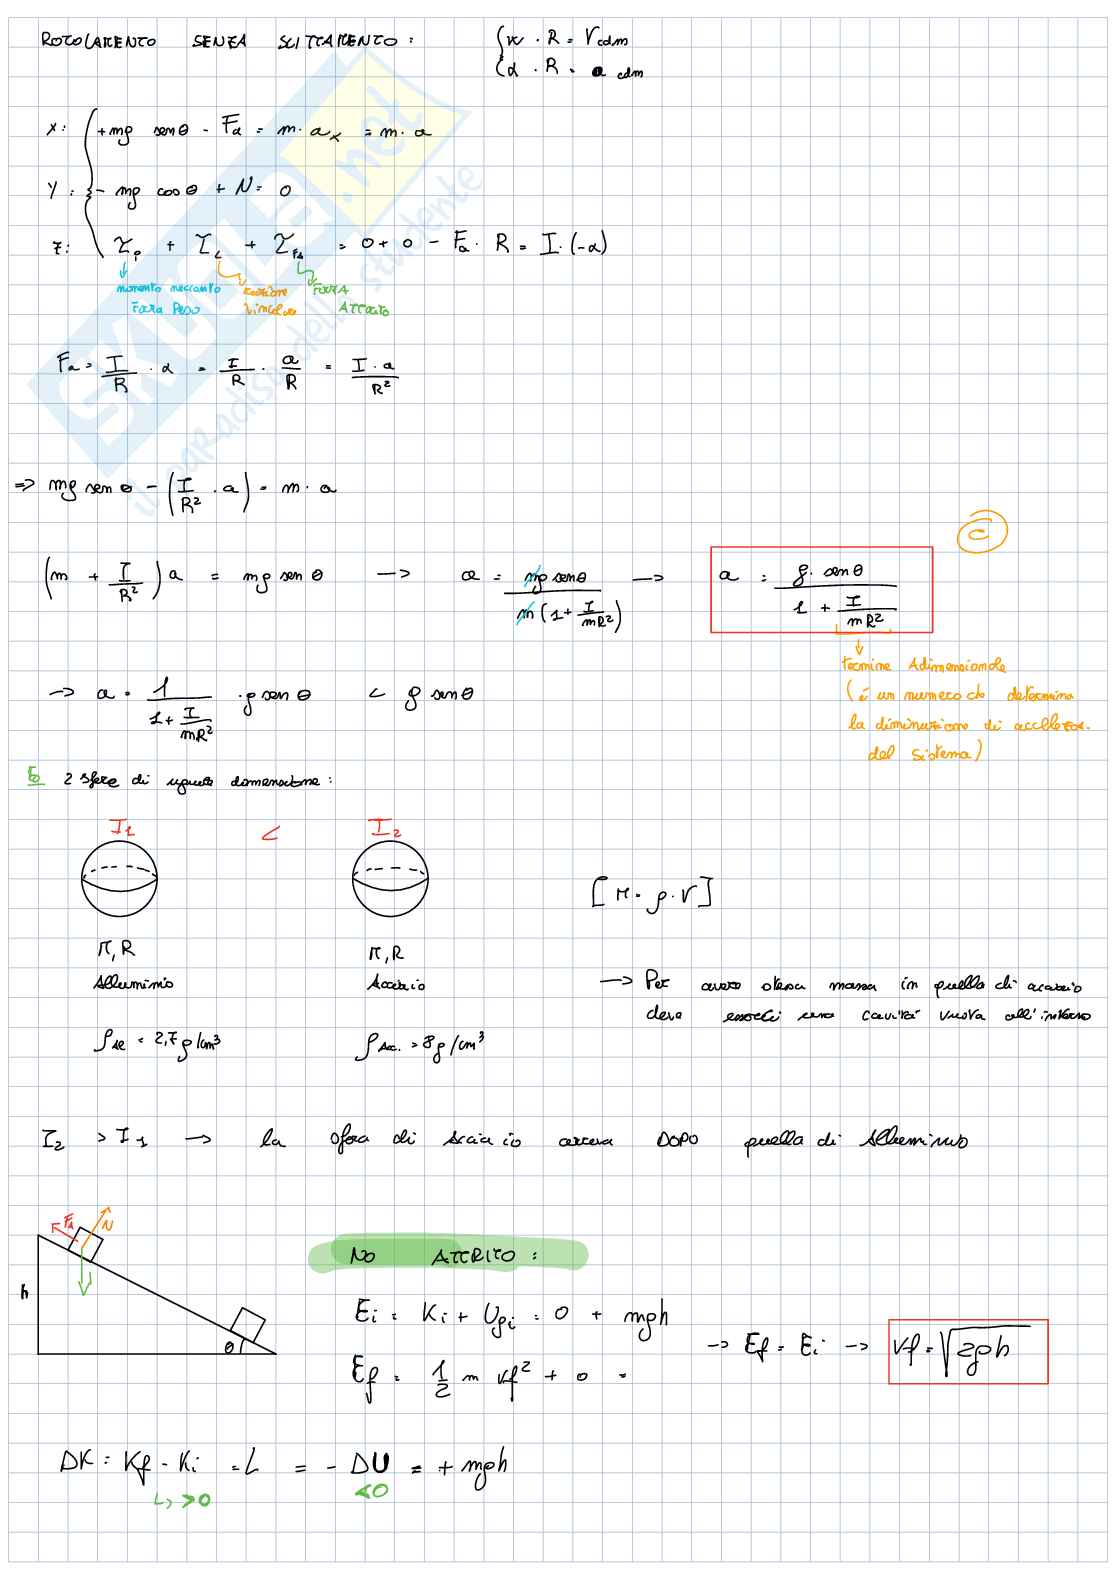 ROTOLAMENTO SENZA SLITTAMENTO:
{ w · R = Vcdm
α · R = a cdm
x: { +mg senθ - Fa = m · ax = m · a
Y: - mg cosθ + N = 0
z: τp + τL + τFA = 0 + 0 - Fa · R = I · (-α)
momento meccanico Forza Peso
reazione vincolare
Forza Attrito
Fa = I/R · α = I/R · a/R = I · a/R²
=> mg senθ - (I/R² · a) = m · a
(m + I/R²) a = mg senθ → a = mg senθ / m(1 + I/mR²) → a = g · senθ / 1 + I/mR²
→ a = 1 / 1 + I/mR² · g senθ < g senθ
termine Adimensionale
(é un numero che determina
la diminuzione di acceleraz.
del sistema)
2 sfere di uguale dimensione:
I1 < I2
[M = ρ · V]
M, R
M, R
Alluminio
Acciaio
→ Per avere stessa massa in quella di acciaio
deve esserci una cavità vuota all'interno
ρAl = 2,7 g/cm³
ρAcc. = 8 g/cm³
I2 > I1 → la sfera di Acciaio arriva DOPO quella di Alluminio
FA
N
h
θ
NO ATTRITO:
Ei = Ki + Ugi = 0 + mgh
Ef = 1/2 m vf² + 0 =
→ Ef = Ei → Vf = √2gh
DK = Kf - Ki = L = - DU = + mgh
↳ >0
<0
SKUOLA.net
il paradiso dello studente